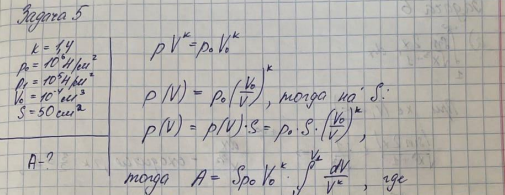 Задача 5
k = 1,4
p₀ = 10⁶ Н/см²
p₁ = 10⁵ Н/см²
V₀ = 10⁻⁴ см³
S = 50 см²
A - ?
p V^k = p₀ V₀^k
p (V) = p₀ (V₀/V)^k, тогда на S:
p (V) = p(V) · S = p₀ · S · (V₀/V)^k,
тогда A = S p₀ V₀^k · ∫ dV/V^k, где